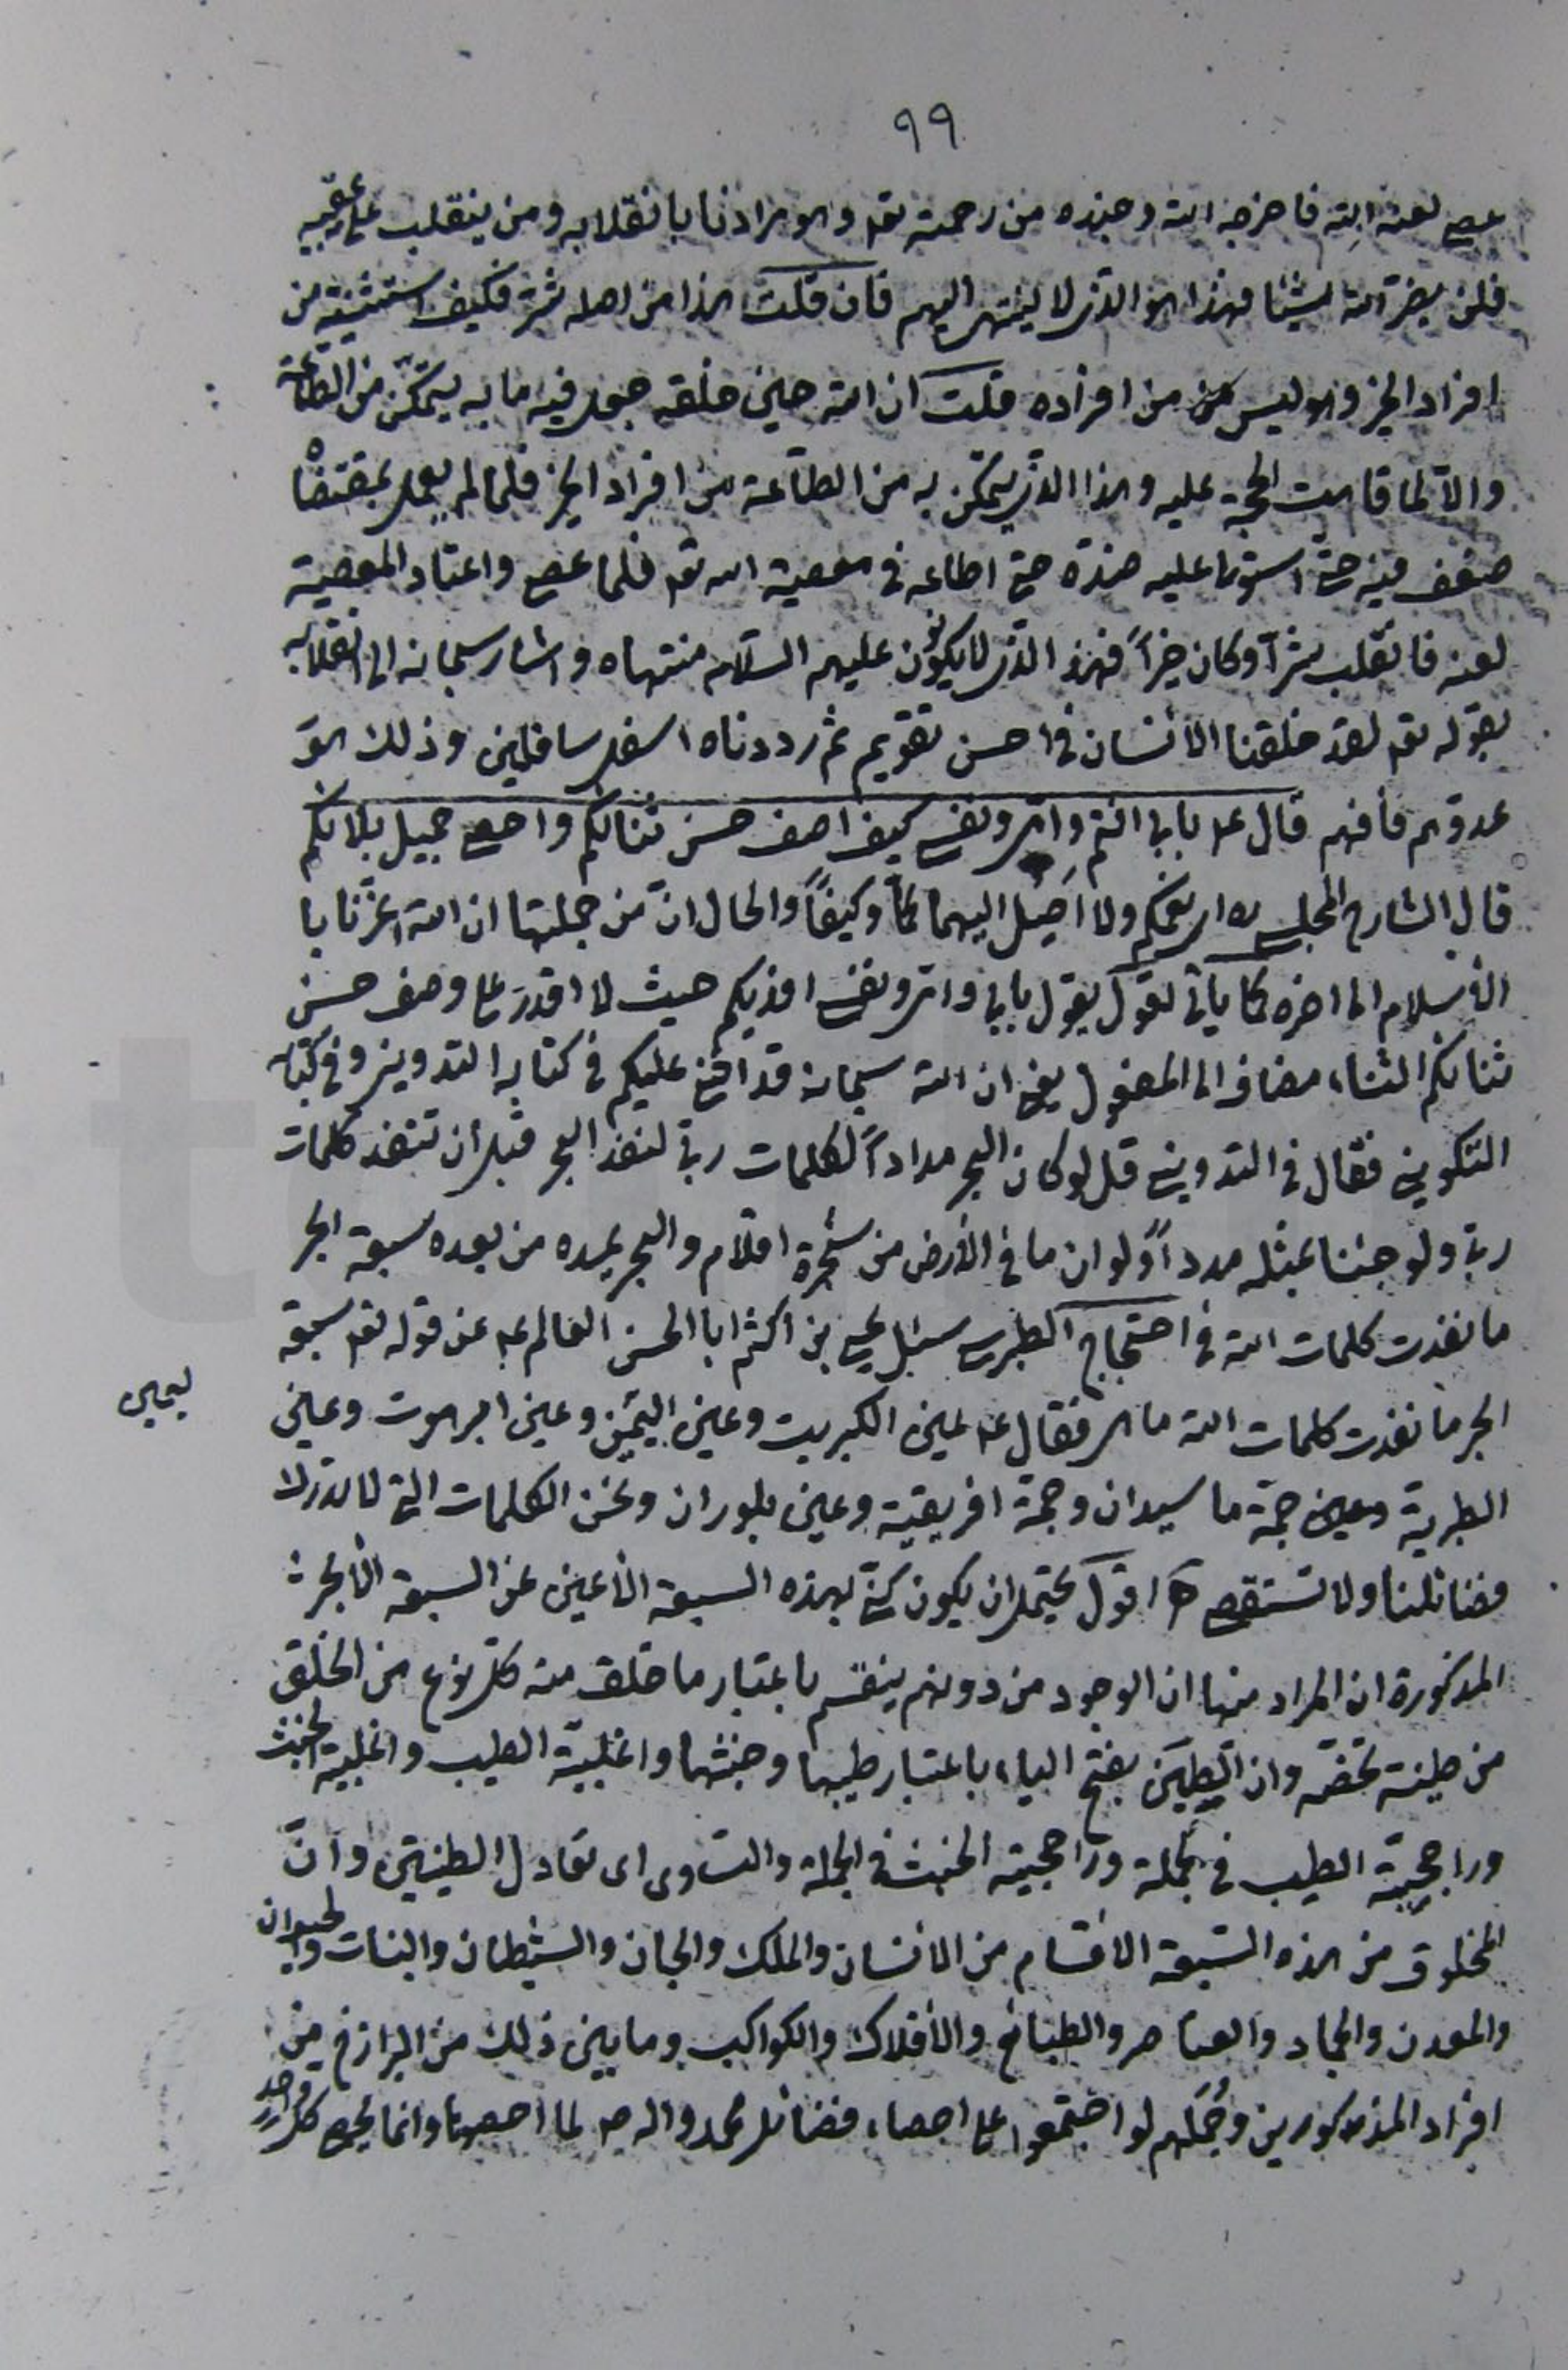 ٩٩
عصى لعنه الله فاخرجه الله وجنده من رحمته تعه وهو مرادنا بانقلابه ومن ينقلب على عقبيه
فلن يضر الله شيئا فهذا هو الذى لا ينتهى اليهم فان قلت هذا من اصله شر فكيف استثنيته من
افراد الخير وهو ليس من افراده قلت ان الله حين خلقه جعل فيه ما به يتمكن من الطاعة
والّا لما قامت الحجة عليه وهذا الذى يتمكن به من الطاعة من افراد الخير فلما لم يعمل بمقتضاه
ضعف فيه حتى استولى عليه ضده حتى اطاعه فى معصية الله تعه فلما عصى واعتاد المعصية
لعنه فانقلب شرّاً وكان خيراً فهذا الذى لا يكونون عليهم السّلام منتهاه واشار سبحانه الى انقلابه
بقوله تعه لقد خلقنا الانسان فى احسن تقويم ثم رددناه اسفل سافلين وذلك هو
عدوهم فافهم قال عه بابى انتم وامى ونفسى كيف اصف حسن ثنائكم واحصى جميل بلائكم
قال الشارح المجلسى ره اى نعمكم ولا اَصِلُ اليهما كمّاً وكيفاً والحال انّ من جملتها ان الله اعزّنا با
الاسلام الى اخره كما يأتى اقول يقول بابى وامى ونفسى افديكم حيث لا اقدر على وصف حسن
ثنائكم الثناء مضاف الى المفعول يعنى ان الله سبحانه قد اثنى عليكم فى كتابه التدوينى وفى كتابه
التكوينى فقال فى التدوينى قل لو كان البحر مداداً لكلمات ربى لنفد البحر قبل ان تنفد كلمات
ربى ولو جئنا بمثله مدداً ولو ان ما فى الارض من شجرة اقلام والبحر يمده من بعده سبعة ابحر
ما نفدت كلمات الله فى احتجاج الطبرسى سئل يحيى بن اكثم ابا الحسن العالم عه عن قوله تعه سبعة
ابحر ما نفدت كلمات الله ما هى فقال عه عين الكبريت وعين اليمن وعين ابرهوت وعين
الطبرية وعين حمّة ما سيدان وحمة افريقية وعين بلوران ونحن الكلمات التى لا تدرك
فضائلنا ولا تستقصى اقول يحتمل ان يكون كنّى بهذه السبعة الاعين عن السبعة الابحر
المذكورة ان المراد منها ان الوجود من دونهم ينقسم باعتبار ما خلق منه كل نوع من الخلق
من طينة تخصّه وان الطينتين بفتح الياء باعتبار طيبها وخبثها واغلبيّة الطيب واغلبية الخبث
وراجحيّة الطيب فى الجملة وراجحيّة الخبث فى الجملة والتساوى اى تعادل الطينتين وانّ
المخلوق من هذه السّبعة الاقسام من الانسان والملك والجان والشيطان والنبات والحيوان
والمعدن والجماد والعناصر والطبائع والأفلاك والكواكب وما بين ذلك من البرازخ من
افراد المذكورين وجُمَلهم لو اجتمعوا على احصاء فضائل محمد واله صه لما احصوها وانما يحصى كل واحد